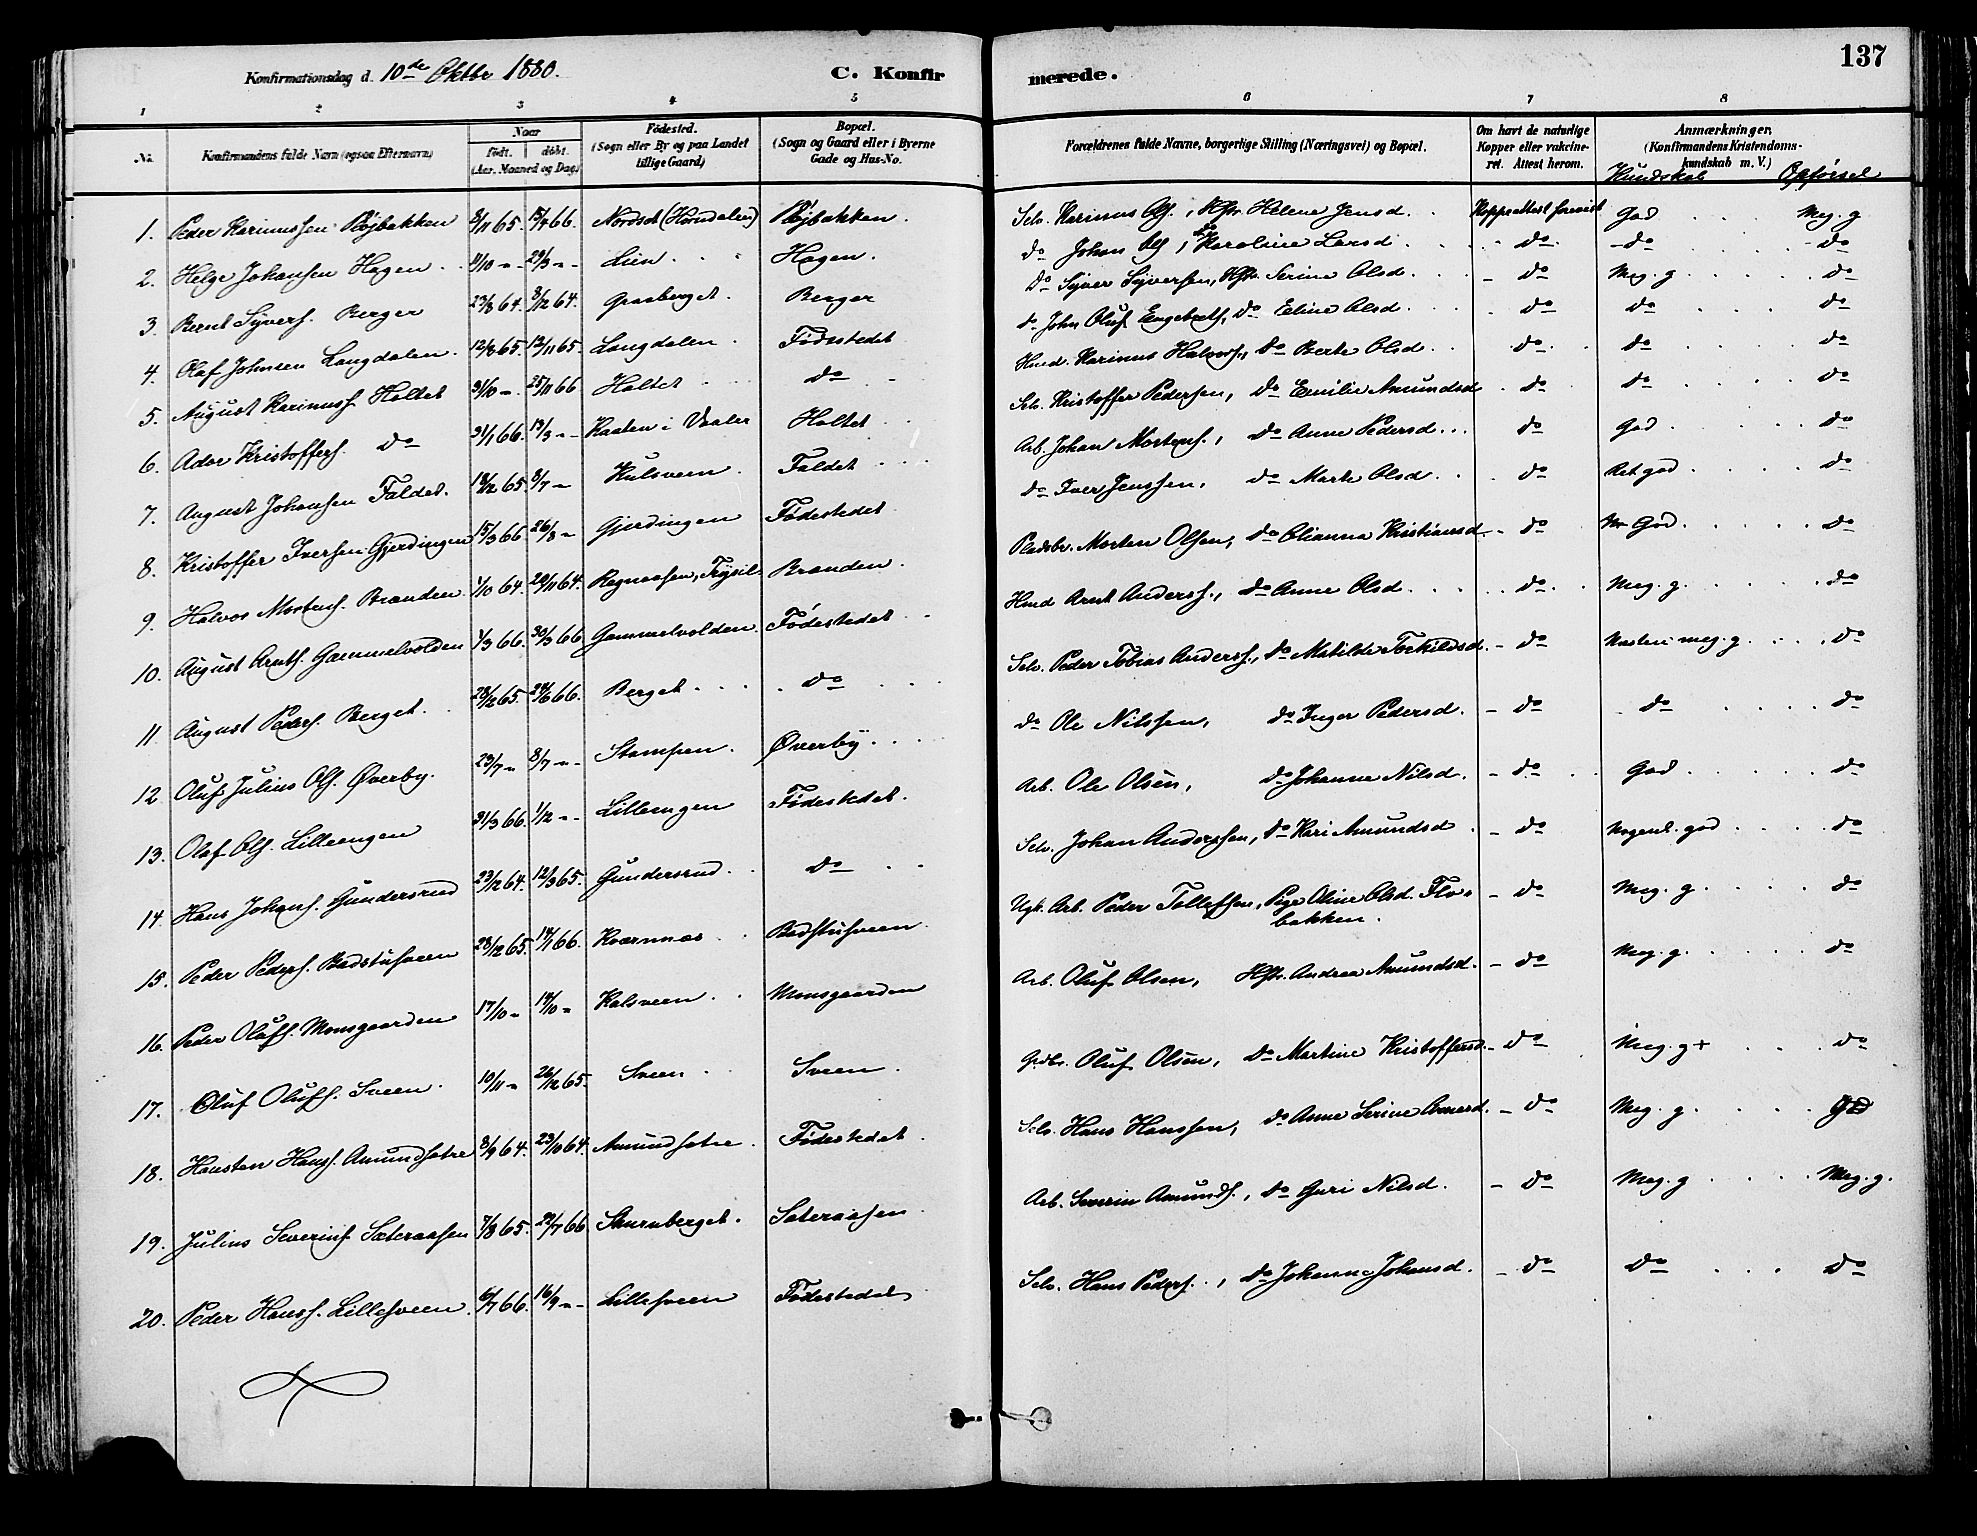 137
Konfirmationsdag d. 10de Oktbr 1880. C. Konfirmerede.
1 2 3 4 5 6 7 8
No. Konfirmandens fulde Navn (ogsaa Efternavn) Naar født. døbt. (Aar, Maaned og Dag) Fødested. (Sogn eller By og paa Landet tillige Gaard) Bopæl. (Sogn og Gaard eller i Byerne Gade og Hus-No. Forældrenes fulde Navne, borgerlige Stilling (Næringsvei) og Bopæl. Om havt de naturlige Kopper eller vakcineret. Attest herom. Anmærkninger. (Konfirmandens Kristendomskundskab m. V.) Kundskab Opførsel
1. Peder Karinussen 65. 66. Nordset Selv. Karinus Ols., Hstr. Helene Jensd. Koppeattest forevist God Meg. g
2. Helge Johansen Hagen 4/10 " 29/3 " Lien Hagen. do Johan Ols., do Karoline Larsd do do do
3. Bernt Syvers. Berger 23/8 64. 3/12 64. Graaberget. Berger do Syver Syversen, Hstr. Serine Olsd do Meg. g do
4. Olaf Johnsen Langdalen. 12/8 65. 12/11 65. Langdalen Fødestedet do John Oluf Engebrets., do Eline Olsd do do do
5. August Karinuss. Holtet 31/10 " 25/11 66 Holtet do Hmd. Karinus Halvors., do Berte Olsd do do do
6. Ador Kristoffers. do 31/1 66. 13/3 " Kaaten i Vaaler Holtet Selv. Kristoffer Pedersen, do Emilie Amundsd do do do
7. August Johansen Faldet. 65. 8/7 " Kulsveen Faldet Arb. Johan Mortens., do Anne Pedersd do God do
8. Kristoffer Iversen Gjerdingen 15/3 66 26/8 " Gjerdingen Fødestedet do Iver Jenssen, do Marte Olsd do Ret god do
9. Halvor Mortens. Branden 1/10 64. 20/11 64. Regnaasen, Trysil Branden. Pladsbr. Morten Olsen, do Olianna Kristiansd do God do
10. August Arnts. Gammelvolden 1/3 66. 30/3 66 Gammelvolden. Fødestedet Hmd Arnt Anders., do Anne Olsd do Meg. g. do
11. August Peders. Berget. 28/12 65. 66. Berget do Selv. Peder Tobias Anders., do Matilde Torkildsd. do Næsten meg. g do
12 Oluf Julius Ols. Øverby. 29/7 " 8/7 " Stampen. Øverby do Ole Nilssen, do Inger Pedersd. do do do
13. Olaf Ols. Lilleengen 31/3 66. 1/12 " Lilleengen Fødestedet. Arb. Ole Olsen, do Johanne Nilsd. do God do
14. Hans Johans. Gundersrud 23/12 64. 12/3 65. Gundersrud do Selv. Johan Anderssen, do Kari Amundsd do Nogenl. god do
15. Peder Peders. Badstusveen 28/12 65. 14/1 66. Kværnnæs Badstusveen Ugk. Arb. Peder Tollefsen, Pige Oline Olsd. Flobakken. do Meg. g. do
16. Peder Olufs. Monsgaarden 17/10 " 14/10 " Kalsveen Monsgaarden Arb. Oluf Olsen, Hstr. Andrea Amundsd. do Meg. g. do
17. Oluf Olufs. Sveen. 10/11 " 26/12 65. Sveen Sveen. Gdbr. Oluf Olsen, do Martine Kristoffersd. do Meg. g+ do
18. Hansten Hanss. Amundsætre 3/9 64. 23/10 64. Amundsætre Fødestedet Selv. Hans Hanssen, do Anne Serine do Meg. g.
19. Julius Severins. Sæteraasen 7/8 65. 22/7 66 Skuruberget. Sæteraasen Arb. Severin Amunds., do Guri Nilsd. do Meg. g Meg. g.
20. Peder Hanss. Lillesveen. 6/7 66. 16/9 " Lillesveen Fødestedet Selv. Hans Peders., do Johanne Johansd. do do do